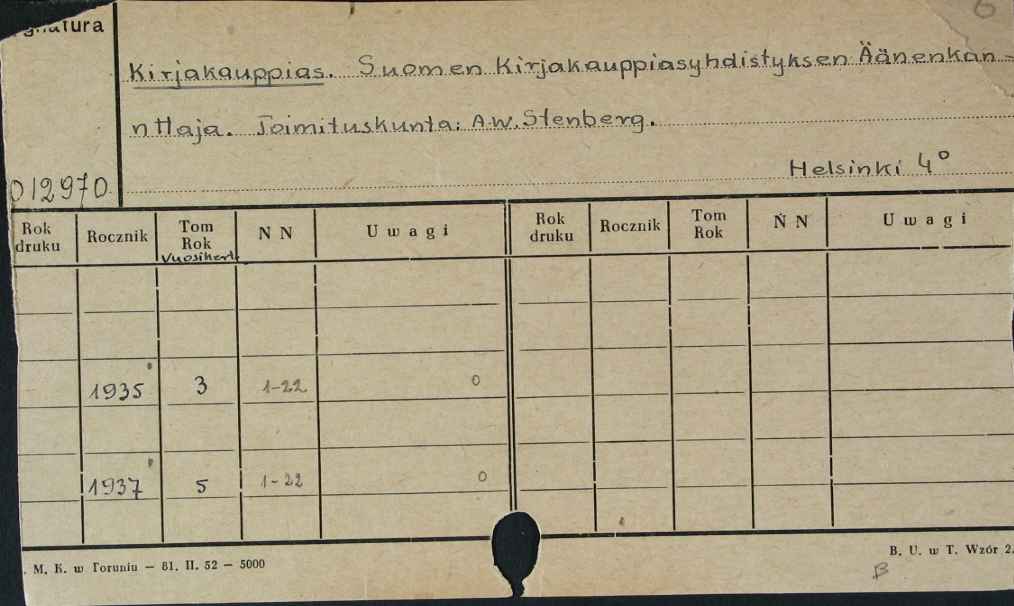 gnatura
6
Kirjakauppias. Suomen Kirjakauppiasyhdistyksen Äänenkan-
nttaja. Toimituskunta: A.W. Stenberg.
Helsinki 4°
012970
Rok druku Rocznik Tom Rok N N Uwagi Rok druku Rocznik Tom Rok N N Uwagi
Vuosikerta
1935 3 1-22 0
1937 5 1-22 0
. M. K. w Toruniu — 81. II. 52 — 5000
B. U. w T. Wzór 2.
B